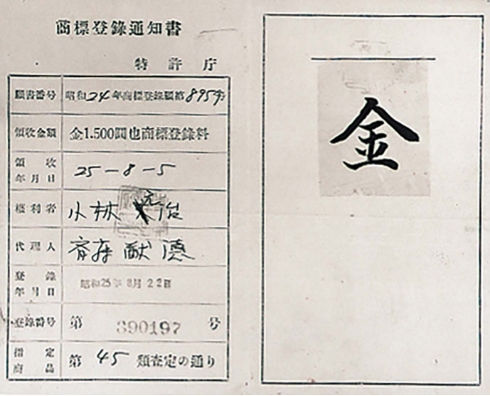 商標登録通知書
特許庁
願書番号 昭和24年商標登録願第8957号
領収金額 金1.500圓也商標登録料
領收年月日 25-8-5
権利者 小林 治
代理人
登録年月日 昭和25年8月22日
登録番号 第 390197 号
指定商品 第 45 類査定の通り
金